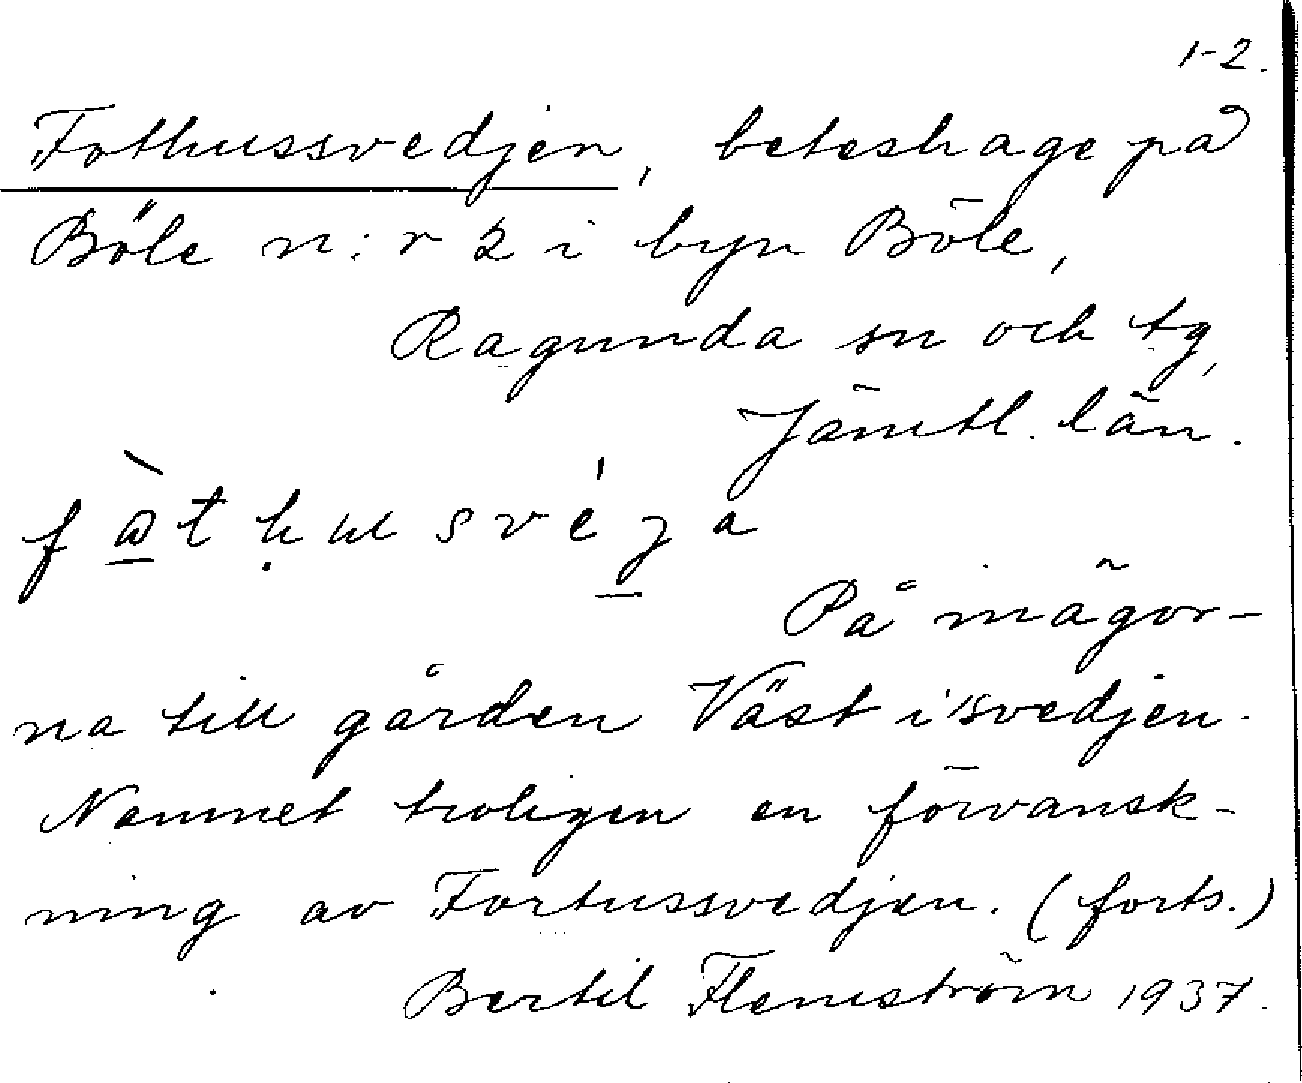 1-2.
Fothussvedjen, beteshage på
Böle n:r 2 i byn Böle,
Ragunda sn och tg,
Jämtl. län.
På mågor-
na till gården Väst i'svedjen.
Namnet troligen en förvansk-
ning av Fortussvedjen. (forts.)
Bertil Flemström 1937.